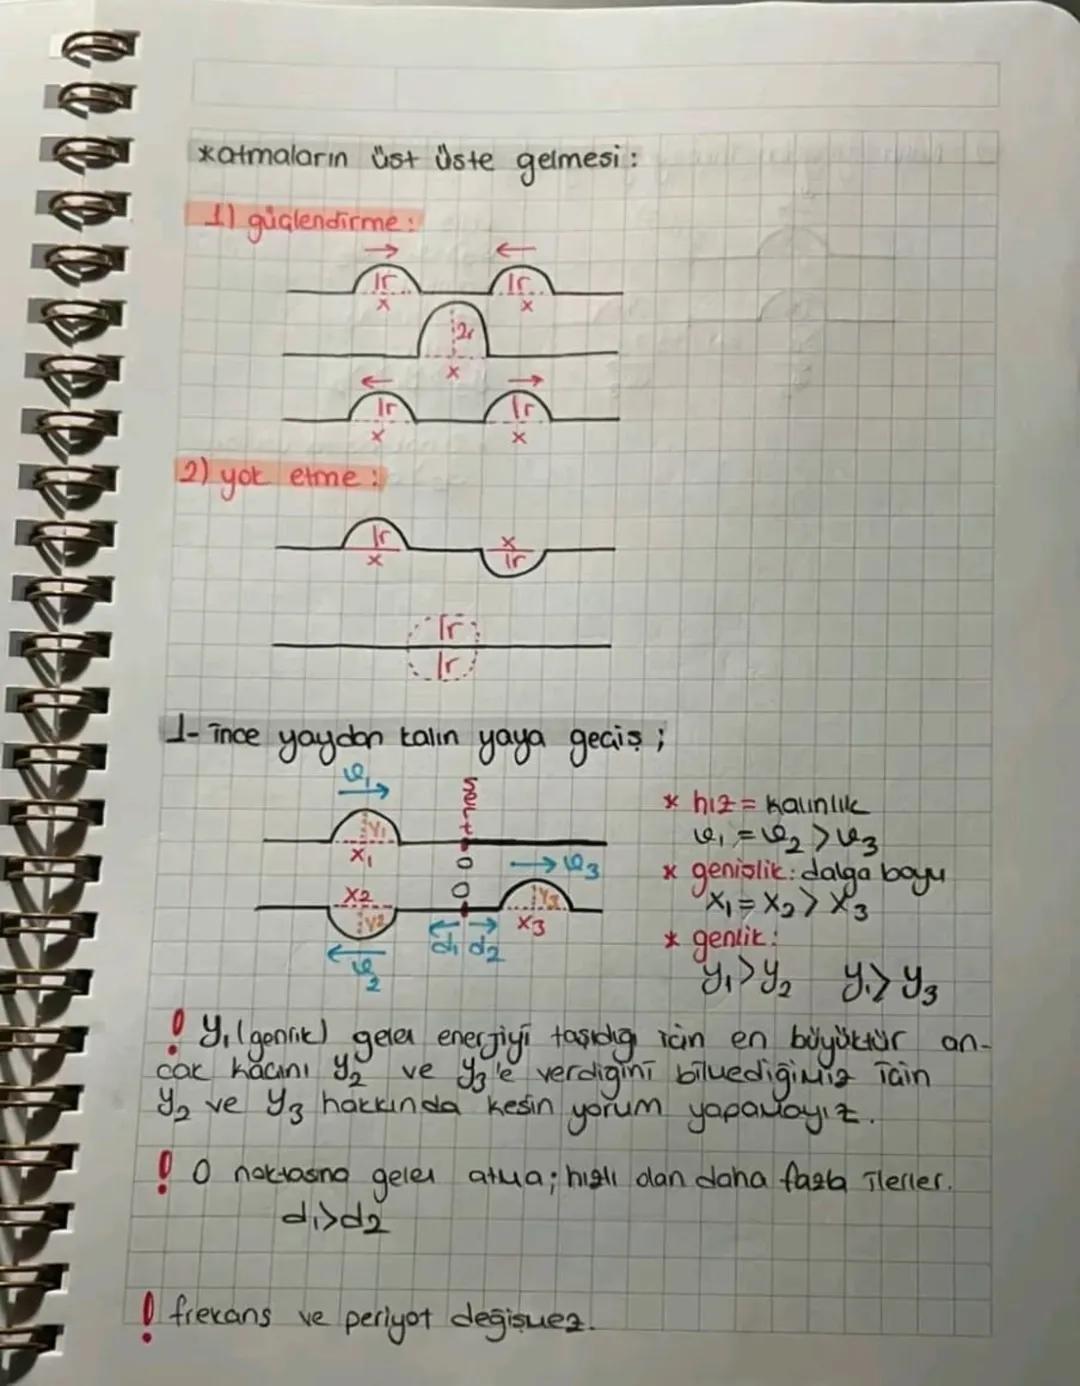 *atmaların üst üste gelmesi:
1) güçlendirme:
→ ←
r r
x x
2r
x
← →
r r
x x
2) yok etme:
r x
x r
r
r
1- ince yaydan kalın yaya geçiş;
v₁ → sert
y₁
x₁ O → v₃
x₂ O y₃
y₂ d₁ d₂ x₃
v₂
* hız = kalınlık
v₁ = v₂ > v₃
* genişlik: dalga boyu
x₁ = x₂ > x₃
* genlik:
y₁ > y₂ y₁ > y₃
! y₁ (genlik) gelen enerjiyi taşıdığı için en büyüktür an-
cak kaçını y₂ ve y₃'e verdiğini bilmediğimiz için
y₂ ve y₃ hakkında kesin yorum yapamayız.
! O noktasına gelen atma; hızlı olan daha fazla ilerler.
d₁ > d₂
! frekans ve periyot değişmez.